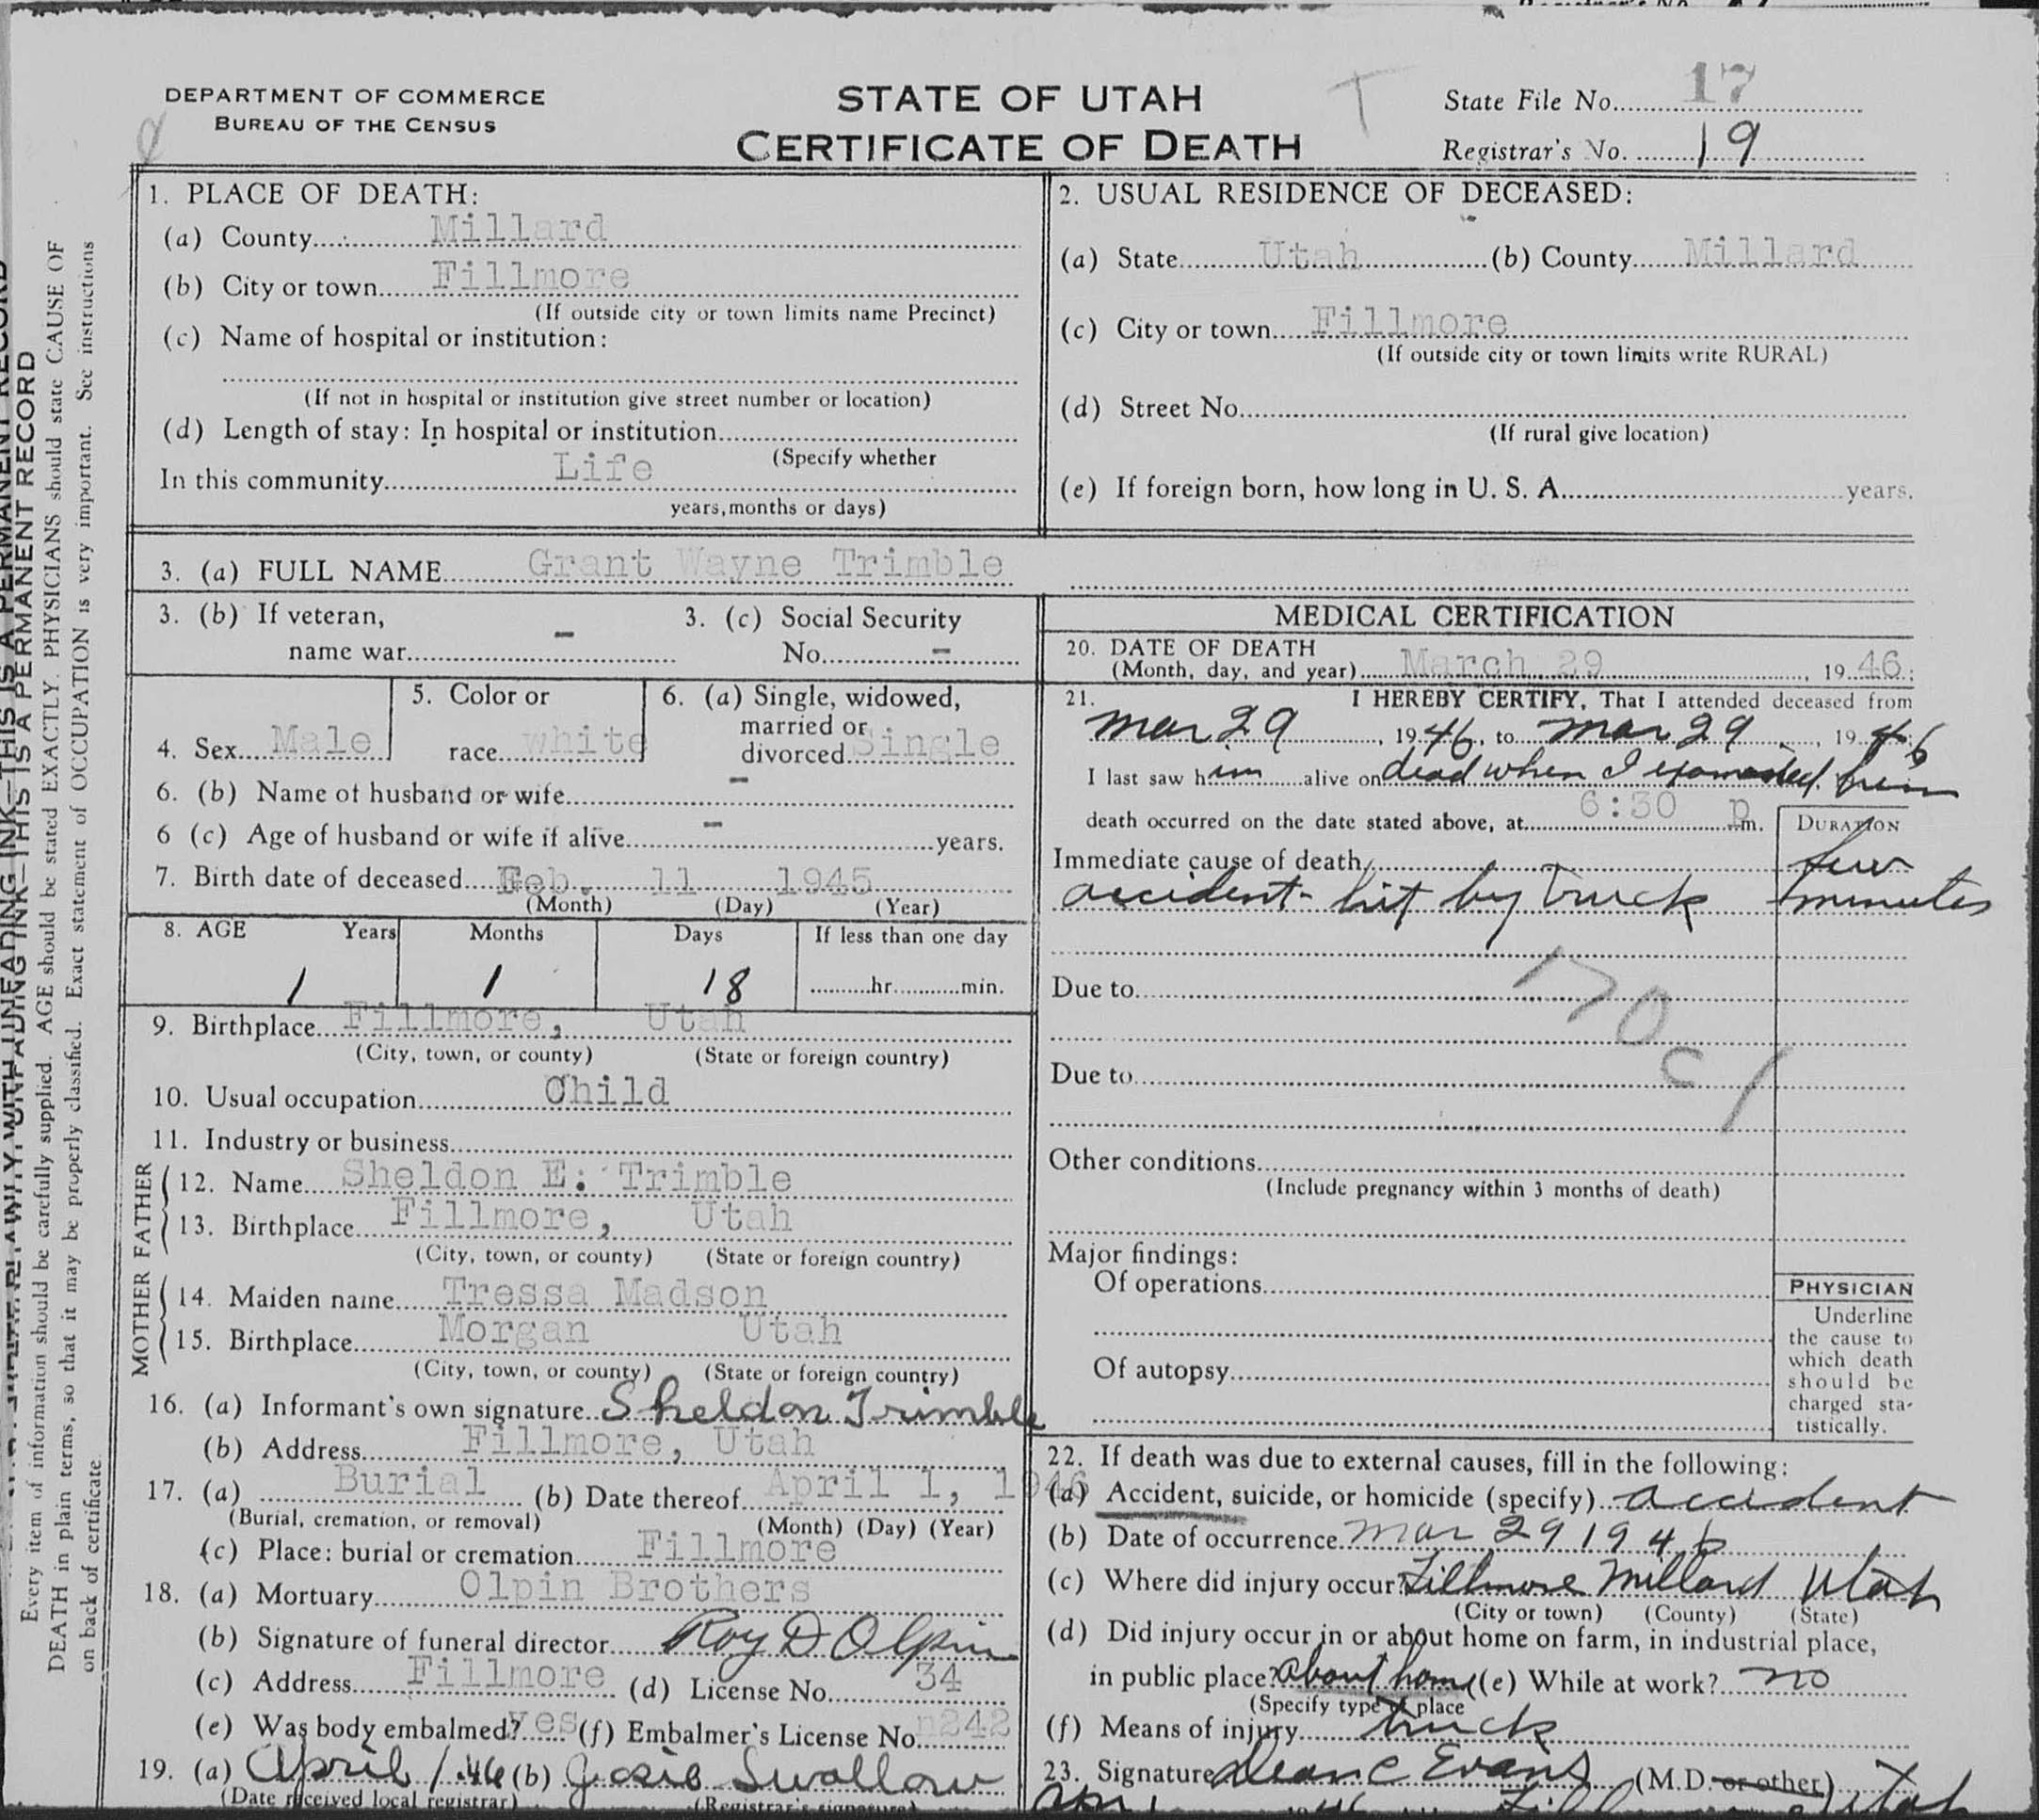 DEPARTMENT OF COMMERCE
BUREAU OF THE CENSUS
STATE OF UTAH
CERTIFICATE OF DEATH
T
State File No. 17
Registrar's No. 19
1. PLACE OF DEATH:
(a) County Millard
(b) City or town Fillmore
(If outside city or town limits name Precinct)
(c) Name of hospital or institution:
(If not in hospital or institution give street number or location)
(d) Length of stay: In hospital or institution
(Specify whether
In this community Life
years, months or days)
2. USUAL RESIDENCE OF DECEASED:
(a) State Utah (b) County Millard
(c) City or town Fillmore
(If outside city or town limits write RURAL)
(d) Street No.
(If rural give location)
(e) If foreign born, how long in U. S. A. years.
3. (a) FULL NAME Grant Wayne Trimble
3. (b) If veteran,
name war -
3. (c) Social Security
No. -
4. Sex Male
5. Color or
race white
6. (a) Single, widowed,
married or
divorced Single
6. (b) Name of husband or wife -
6 (c) Age of husband or wife if alive - years.
7. Birth date of deceased Feb. 11 1945
(Month) (Day) (Year)
8. AGE Years Months Days If less than one day
1 1 18 hr. min.
9. Birthplace Fillmore, Utah
(City, town, or county) (State or foreign country)
10. Usual occupation Child
11. Industry or business
FATHER
12. Name Sheldon E. Trimble
13. Birthplace Fillmore, Utah
(City, town, or county) (State or foreign country)
MOTHER
14. Maiden name Tressa Madson
15. Birthplace Morgan Utah
(City, town, or county) (State or foreign country)
16. (a) Informant's own signature Sheldon Trimble
(b) Address Fillmore, Utah
17. (a) Burial (b) Date thereof April 1, 1946
(Burial, cremation, or removal) (Month) (Day) (Year)
(c) Place: burial or cremation Fillmore
18. (a) Mortuary Olpin Brothers
(b) Signature of funeral director Roy D Olpin
(c) Address Fillmore (d) License No. 34
(e) Was body embalmed? yes (f) Embalmer's License No. 242
19. (a) April 1. 46 (b) Josie Swallow
(Date received local registrar) (Registrar's signature)
MEDICAL CERTIFICATION
20. DATE OF DEATH
(Month, day, and year) March 29, 1946;
21. I HEREBY CERTIFY, That I attended deceased from
Mar 29, 1946, to Mar 29, 1946
I last saw him alive on dead when I examined him
death occurred on the date stated above, at 6:30 p m.
DURATION
Immediate cause of death few
accident - hit by truck minutes
Due to
170
c 1
Due to
Other conditions
(Include pregnancy within 3 months of death)
Major findings:
Of operations
Of autopsy
PHYSICIAN
Underline
the cause to
which death
should be
charged sta-
tistically.
22. If death was due to external causes, fill in the following:
(a) Accident, suicide, or homicide (specify) accident
(b) Date of occurrence Mar 29 1946
(c) Where did injury occur? Fillmore Millard Utah
(City or town) (County) (State)
(d) Did injury occur in or about home on farm, in industrial place,
in public place? About home (e) While at work? no
(Specify type of place
(f) Means of injury truck
23. Signature Dean C Evans (M.D. or other)
THIS IS A PERMANENT RECORD
Every item of information should be carefully supplied. AGE should be stated EXACTLY. PHYSICIANS should state CAUSE OF
DEATH in plain terms, so that it may be properly classified. Exact statement of OCCUPATION is very important. See instructions
on back of certificate.